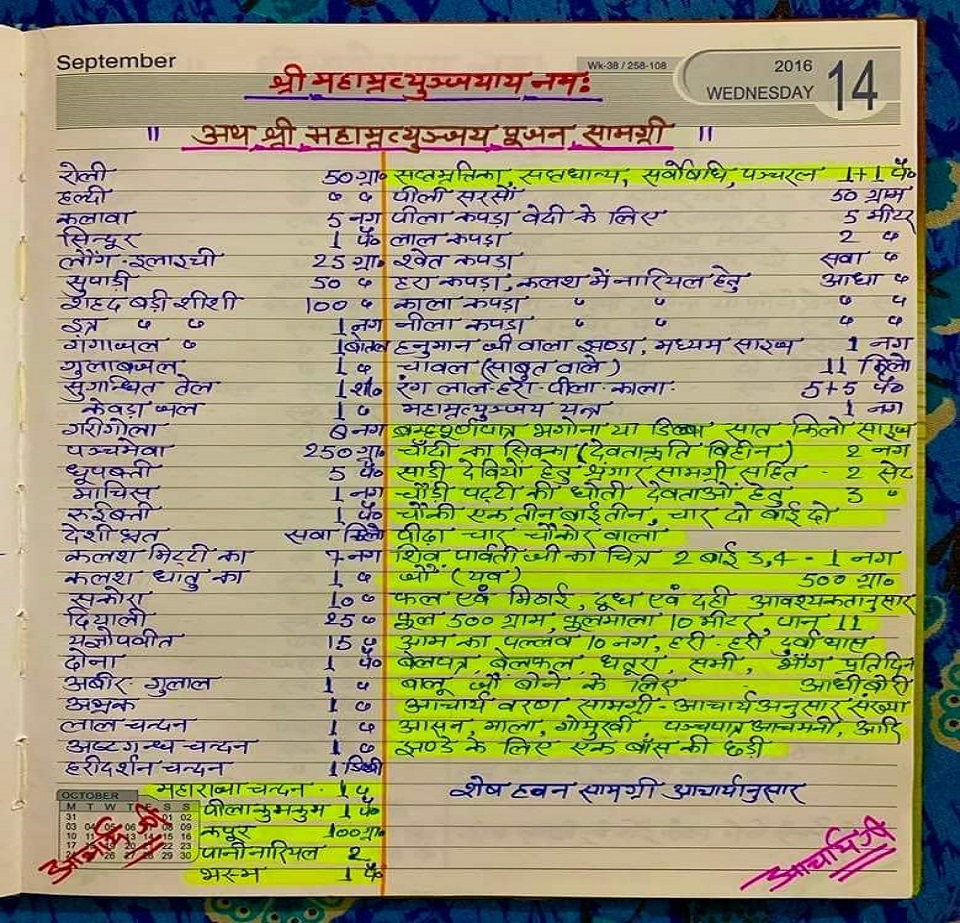 September
Wk-38 / 258-108
2016
WEDNESDAY 14
श्री महामृत्युञ्जयाय नमः
॥ अथ श्री महामृत्युञ्जय पूजन सामग्री ॥
रोली 50 ग्रा०
हल्दी " "
कलावा 5 नग
सिन्दूर 1 पै०
लौंग-इलाइची 25 ग्रा०
सुपाड़ी 50 "
शहद बड़ी शीशी 100 "
इत्र " " 1 नग
गंगाजल " 1 बोतल
गुलाबजल 1 "
सुगन्धित तेल 1 शी०
केवड़ा जल 1 "
गरीगोला 6 नग
पञ्चमेवा 250 ग्रा०
धूपबत्ती 5 पै०
माचिस 1 नग
रुईबत्ती 1 पै०
देशी घृत सवा किलो
कलश मिट्टी का 7 नग
कलश धातु का 1 "
सकोरा 10 "
दियाली 25 "
यज्ञोपवीत 15 "
दोना 1 पै०
अबीर-गुलाल 1 "
अभ्रक 1 "
लाल चन्दन 1 "
अष्टगन्ध चन्दन 1 "
हरीदर्शन चन्दन 1 डिब्बी
महाराजा चन्दन - 1 "
पीला कुमकुम 1 पै०
कपूर 100 ग्रा०
पानी नारियल 2
भस्म 1 पै०
सप्तमृत्तिका, सप्तधान्य, सर्वोषधि, पञ्चरत्न 1+1 पै०
पीली सरसों 50 ग्राम
पीला कपड़ा वेदी के लिए 5 मीटर
लाल कपड़ा 2 "
श्वेत कपड़ा सवा "
हरा कपड़ा, कलश में नारियल हेतु आधा "
काला कपड़ा " " " "
नीला कपड़ा " " " "
हनुमान जी वाला झण्डा, मध्यम साइज 1 नग
चावल (साबुत वाले) 11 किलो
रंग लाल-हरा-पीला-काला: 5+5 पै०
महामृत्युञ्जय यन्त्र 1 नग
ब्रम्हपूर्णपात्र भगोना या डिब्बा सात किलो साइज
चाँदी का सिक्का (देवताकृति विहीन) 2 नग
साड़ी देवियों हेतु श्रृंगार सामग्री सहित - 2 सेट
चौड़ी पट्टी की धोती देवताओं हेतु 3 "
चौकी एक तीन बाई तीन, चार दो बाई दो
पीढ़ा चार चौकोर वाला
शिव पार्वती जी का चित्र 2 बाई 3,4 - 1 नग
जौ (यव) 500 ग्रा०
फल एवं मिठाई, दूध एवं दही आवश्यकतानुसार
फूल 500 ग्राम, फूलमाला 10 मीटर, पान 11
आम का पल्लव 10 नग, हरी-हरी दूर्वा घास
बेलपत्र, बेलफल, धतूरा, समी, भाँग प्रतिदिन
बालू जौ बोने के लिए आधी बोरी
आचार्य वरण सामग्री - आचार्य अनुसार संख्या
आसन, माला, गोमुखी पञ्चपात्र आचमनी, आदि
झण्डे के लिए एक बाँस की छड़ी
शेष हवन सामग्री आचार्यानुसार
OCTOBER
M T W T F S S
आचार्य जी